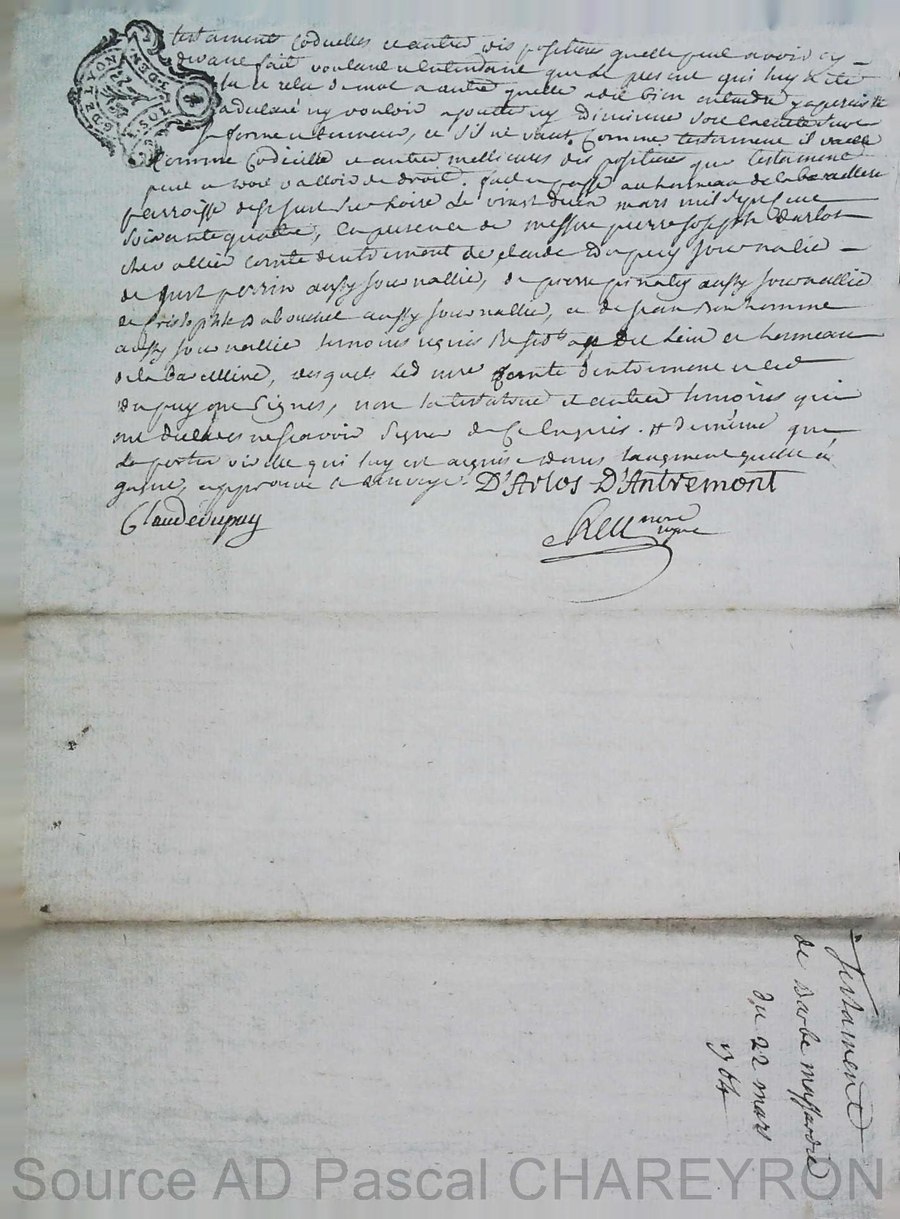 testament Codicilles et autre dispositions quelle peut avoir cy
devant fait voulant et entendant que le present qui luy a été
lu et relu de mot a autre quelle a dit bien entendre
a declaré ny vouloir ajoutter ny diminuer
sa forme et teneur, et s'il ne vaut Comme testament il vaille
Comme Codicille et autre meilleures dispositions que testament
peut et doit valloir de droit. fait et passé au hameau de la baralliere
parroisse de St just sur Loire Le vingt deux mars mil sept cent
soixante quatre, En presence de messire pierre joseph Darlos
chevallier comte dentremont de claude Dupuy journalie
de just perrin aussy journallie, de pierre aussy journallie
de cristophle aussy journallie, et de jean Bonhomme
aussy journallie temoins requis dudit lieu et hameau
de la baralliere, desquels Led sire Comte d'entremont et led
Dupuy ont signés, non la testatrice et autres temoins qui
ont declarés ne sçavoir signer de Ce Enquis. # de même que
La portion virille qui luy est acquise dans laugment quelle a
gagné, approuvé le renvoye. D'Arlos D'Antremont
Claude dupuy
nore royal
Testament
de Barbe
du 22 mars
1764
GEN DE LYON
Source AD Pascal CHAREYRON